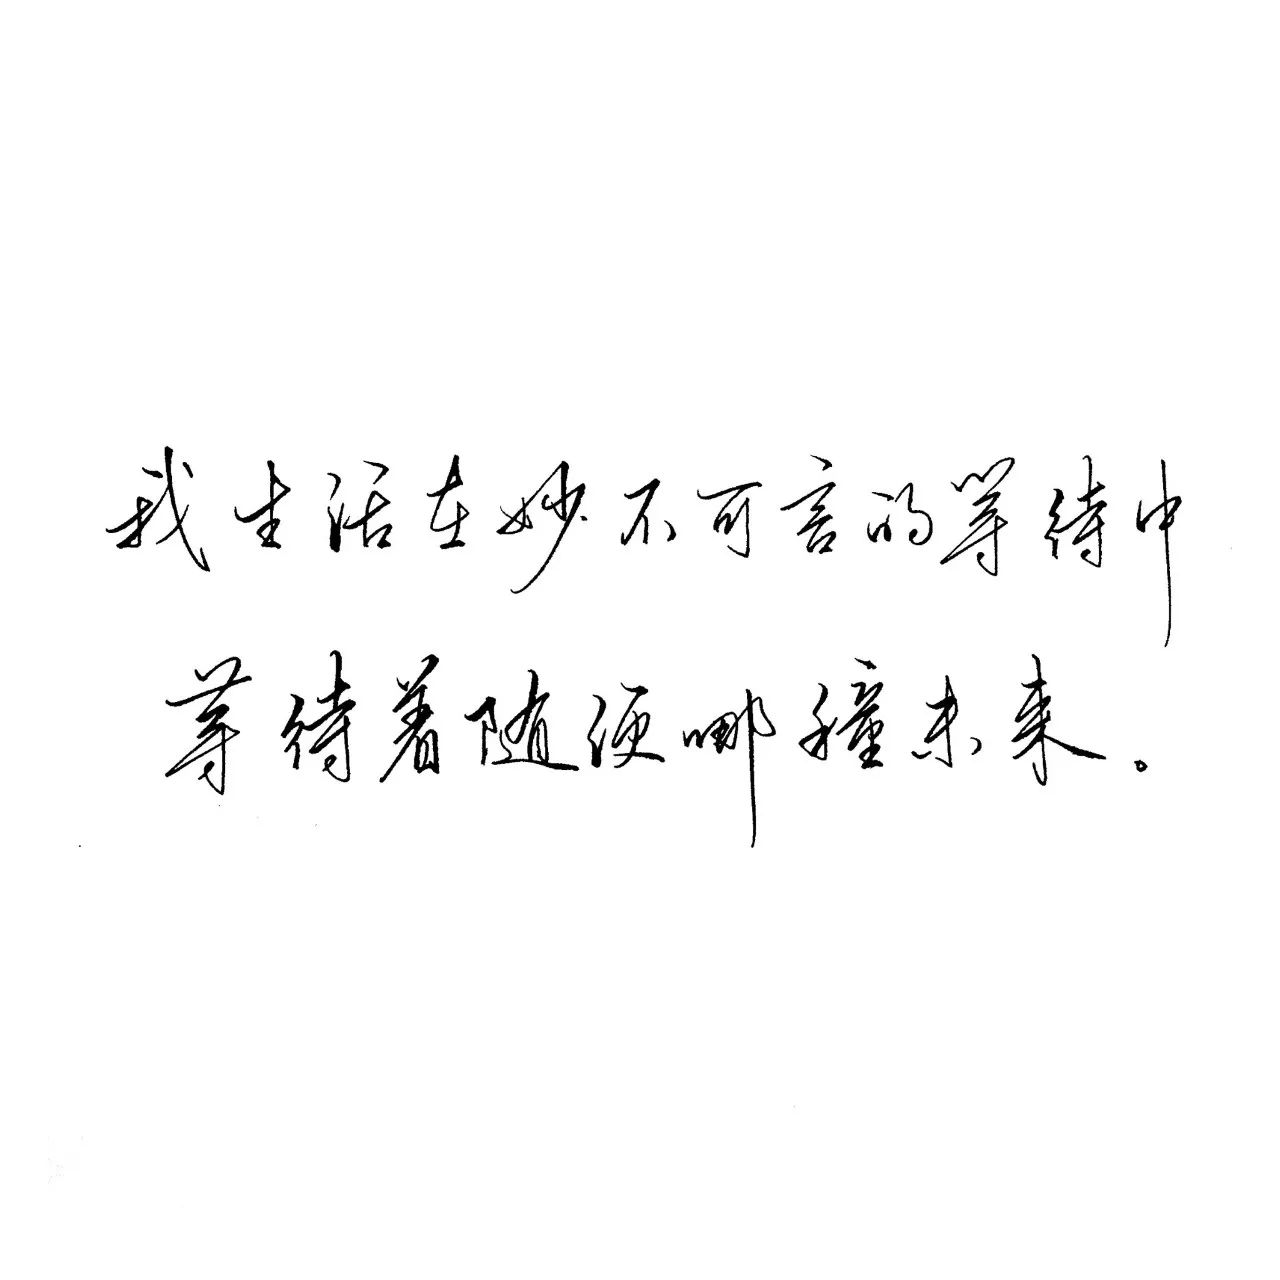 我生活在妙不可言的等待中
等待着随便哪種未来。